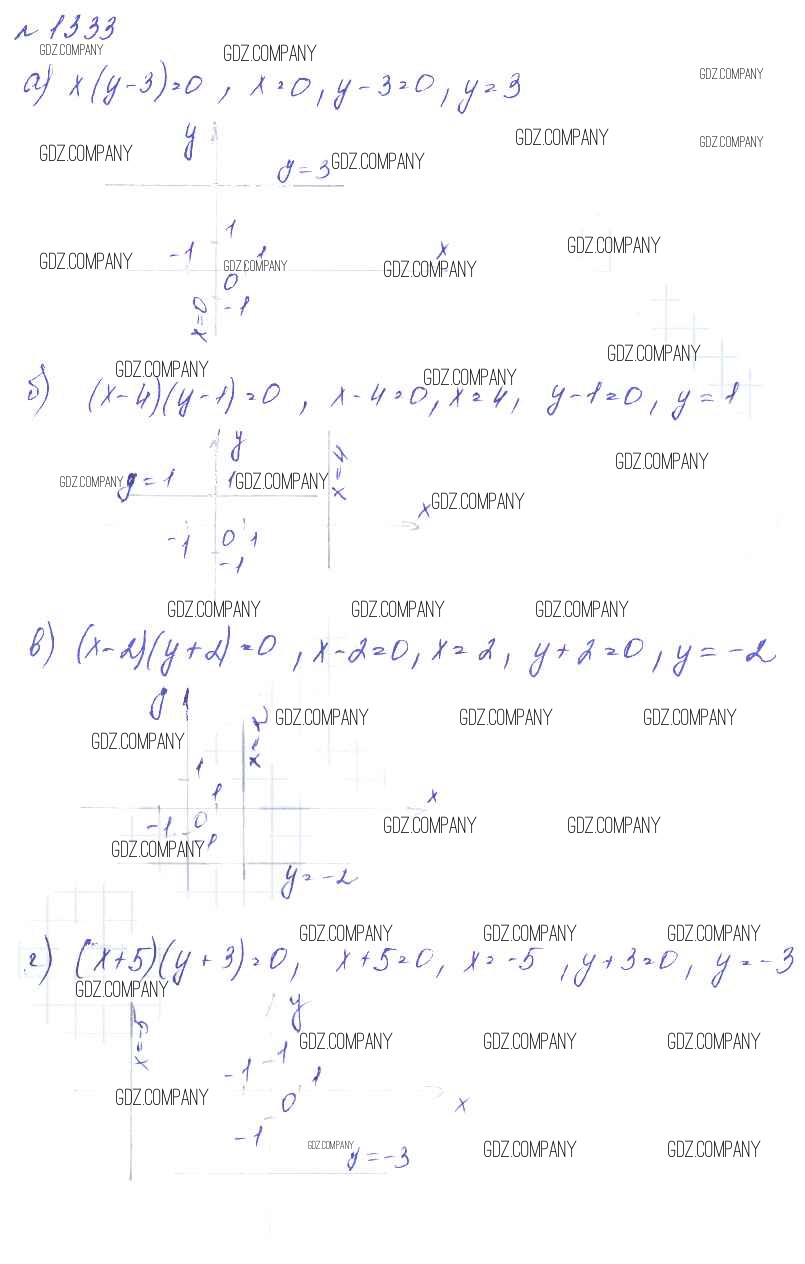 № 1333
GDZ.COMPANY GDZ.COMPANY GDZ.COMPANY
а) x(y-3)=0, x=0, y-3=0, y=3
GDZ.COMPANY GDZ.COMPANY
y
GDZ.COMPANY y=3 GDZ.COMPANY
1
GDZ.COMPANY -1 1 x GDZ.COMPANY
GDZ.COMPANY GDZ.COMPANY
0
x=0 -1
GDZ.COMPANY
GDZ.COMPANY GDZ.COMPANY
б) (x-4)(y-1)=0, x-4=0, x=4, y-1=0, y=1
y GDZ.COMPANY
GDZ.COMPANY y=1 1 GDZ.COMPANY x=4
x GDZ.COMPANY
-1 0 1
-1
GDZ.COMPANY GDZ.COMPANY GDZ.COMPANY
в) (x-2)(y+2)=0, x-2=0, x=2, y+2=0, y=-2
y
x=2 GDZ.COMPANY GDZ.COMPANY GDZ.COMPANY
GDZ.COMPANY
1
1 x
-1 0 GDZ.COMPANY GDZ.COMPANY
GDZ.COMPANY -1
y=-2
GDZ.COMPANY GDZ.COMPANY GDZ.COMPANY
г) (x+5)(y+3)=0, x+5=0, x=-5, y+3=0, y=-3
GDZ.COMPANY
y
x=-5 1 GDZ.COMPANY GDZ.COMPANY GDZ.COMPANY
-1 1
GDZ.COMPANY 0 x
-1
GDZ.COMPANY y=-3 GDZ.COMPANY GDZ.COMPANY